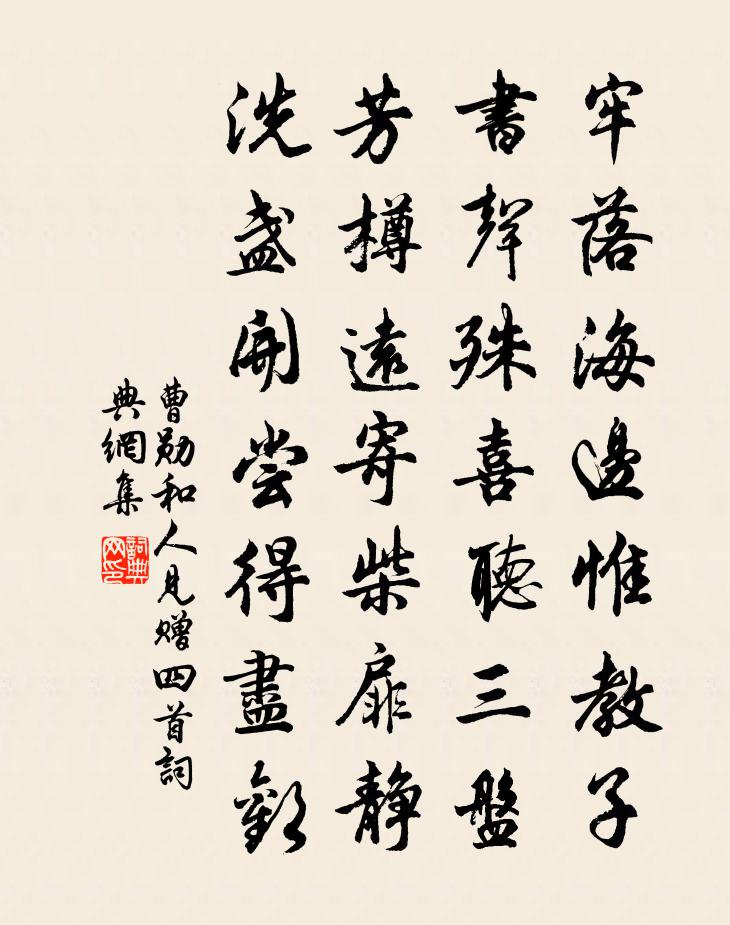 牢落海邊惟教子
書聲殊喜聽三盤
芳樽遠寄柴扉静
洗盞開嘗得盡歡
曹勛和人見贈四首詞
典網集
詞典
网印